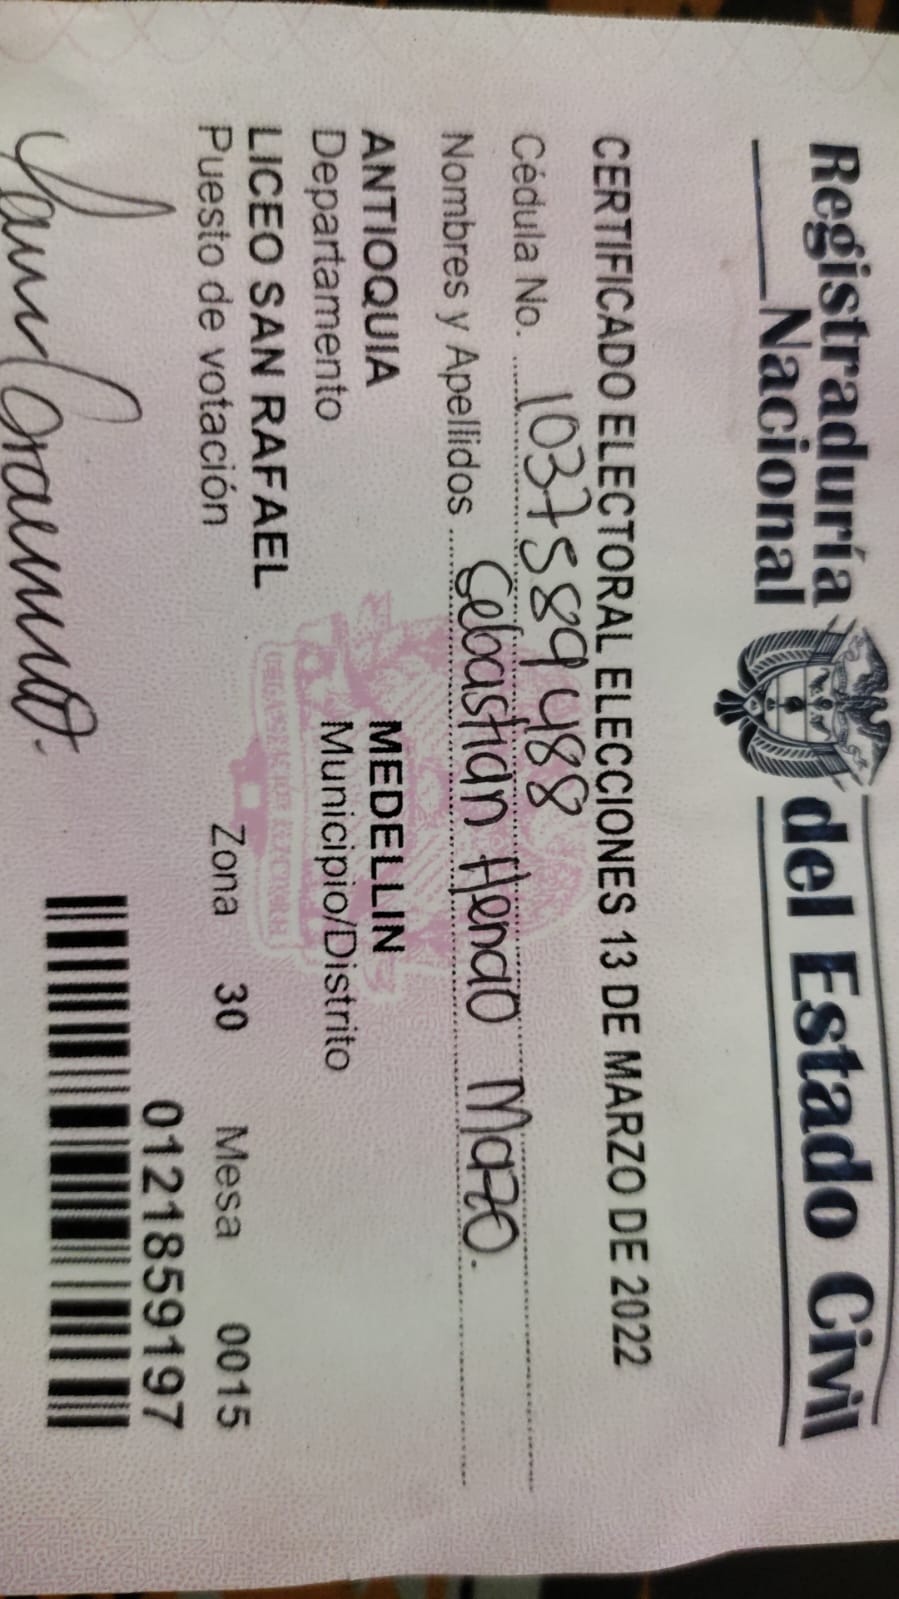 Registraduría
Nacional del Estado Civil
CERTIFICADO ELECTORAL ELECCIONES 13 DE MARZO DE 2022
Cédula No. 1037589488
Nombres y Apellidos Sebastian Henao Mazo.
ANTIOQUIA MEDELLIN
Departamento Municipio/Distrito
LICEO SAN RAFAEL
Puesto de votación Zona 30 Mesa 0015
0121859197